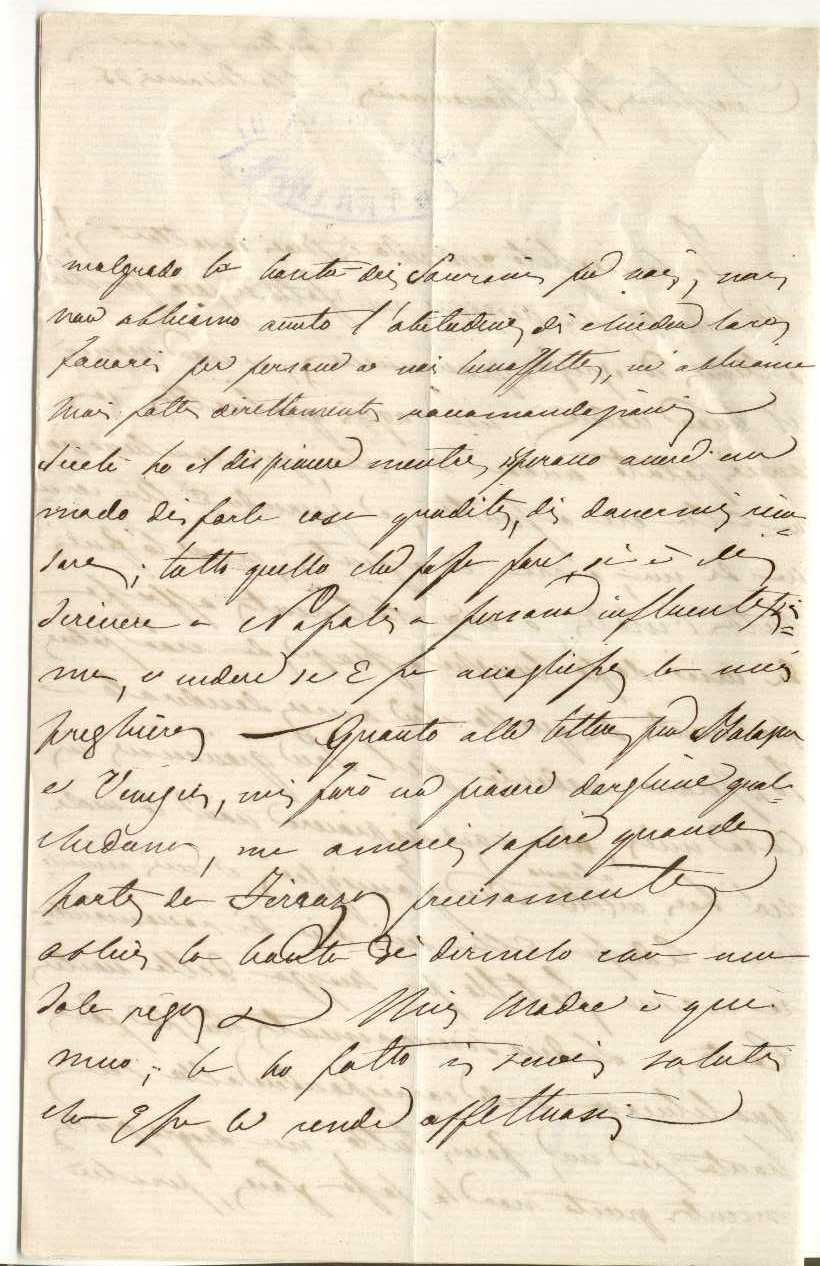 malgrado la bontà dei Sovrani per noi, noi
non abbiamo avuto l'abitudine di chieder loro
favori per persone a noi benaffette, nè abbiamo
mai fatte direttamente raccomandazioni —
Sicchè ho il dispiacere mentre speravo avere un
modo di farle cosa gradita, di dovermi ricu=
sare; tutto quello che posso fare, si è di
scrivere a Napoli a persona influentissi=
ma, e vedere se E per accogliere la mia
preghiera — Quanto alle lettere per
e Venezia, mi farò un piacere dargliene qual=
cheduna, ma amerei sapere quando
parte da Firenze precisamente
abbia la bontà di dirmelo con una
sola riga — Mia Madre è qui
meco; le ho fatto i suoi saluti
che Essa le rende affettuosi —